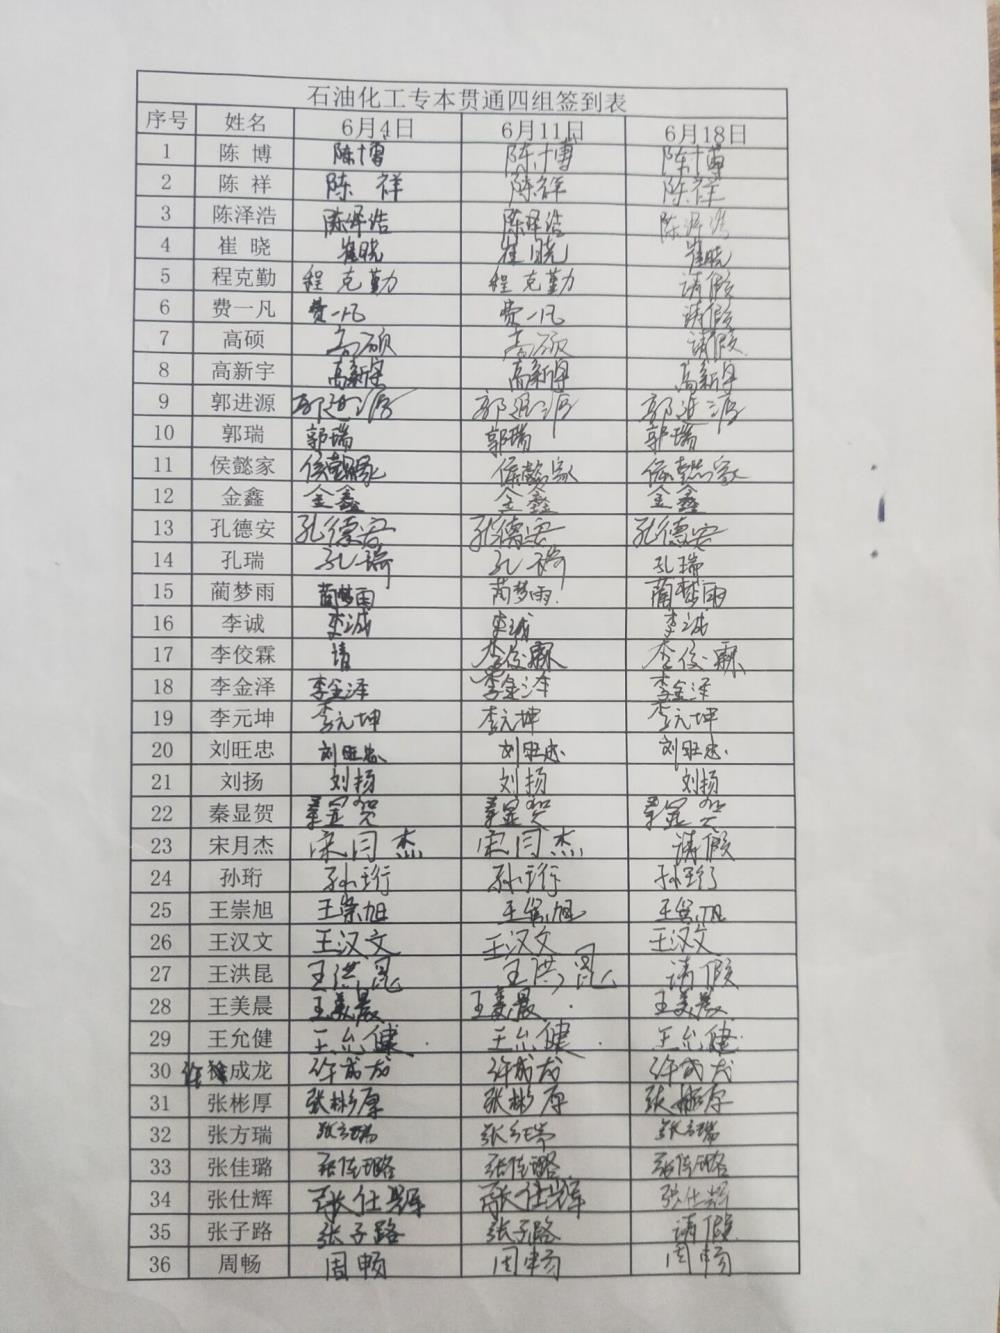 石油化工专本贯通四组签到表
序号 姓名 6月4日 6月11日 6月18日
1 陈 博 陈博 陈博 陈博
2 陈 祥 陈 祥 陈祥 陈祥
3 陈泽浩 陈泽浩 陈泽浩 陈泽浩
4 崔 晓 崔晓 崔晓 崔晓
5 程克勤 程克勤 程克勤 请假
6 费一凡 费一凡 费一凡 请假
7 高硕 高硕 高硕 请假
8 高新宇 高新宇 高新宇 高新宇
9 郭进源 郭进源 郭进源 郭进源
10 郭瑞 郭瑞 郭瑞 郭瑞
11 侯懿家 侯懿家 侯懿家 侯懿家
12 金鑫 金鑫 金鑫 金鑫
13 孔德安 孔德安 孔德安 孔德安
14 孔瑞 孔瑞 孔瑞 孔瑞
15 蔺梦雨 蔺梦雨 蔺梦雨 蔺梦雨
16 李诚 李诚 李诚 李诚
17 李佼霖 请 李佼霖 李佼霖
18 李金泽 李金泽 李金泽 李金泽
19 李元坤 李元坤 李元坤 李元坤
20 刘旺忠 刘旺忠 刘旺忠 刘旺忠
21 刘扬 刘扬 刘扬 刘扬
22 秦显贺 秦显贺 秦显贺 秦显贺
23 宋月杰 宋月杰 宋月杰 请假
24 孙珩 孙珩 孙珩 孙珩
25 王崇旭 王崇旭 王崇旭 王崇旭
26 王汉文 王汉文 王汉文 王汉文
27 王洪昆 王洪昆 王洪昆 请假
28 王美晨 王美晨 王美晨 王美晨
29 王允健 王允健 王允健 王允健
30 许成龙 许成龙 许成龙 许成龙
31 张彬厚 张彬厚 张彬厚 张彬厚
32 张方瑞 张方瑞 张方瑞 张方瑞
33 张佳璐 张佳璐 张佳璐 张佳璐
34 张仕辉 张仕辉 张仕辉 张仕辉
35 张子路 张子路 张子路 请假
36 周畅 周畅 周畅 周畅